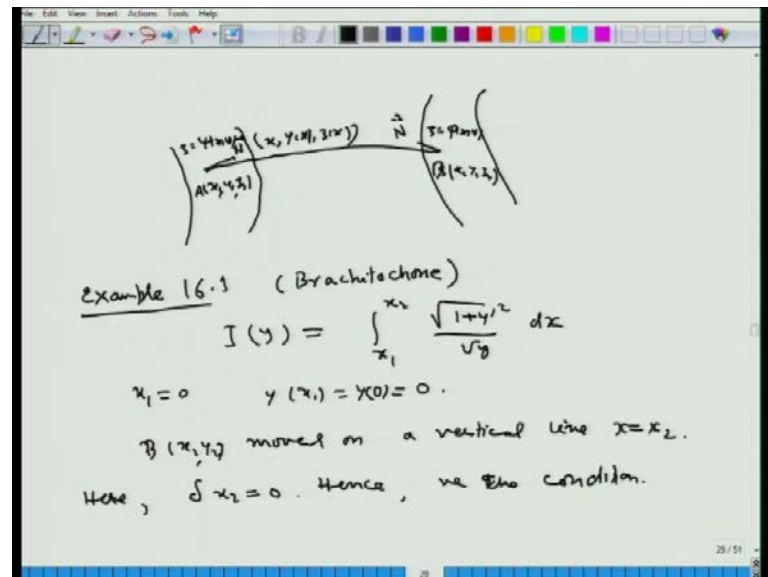 File Edit View Insert Actions Tools Help
(x, y(x), z(x))
N
N
A(x, y, z)
B(x₂ y₂ z₂)
Example 16.3 (Brachitochone)
I(y) = ∫_{x₁}^{x₂} √(1+y'²) / √y dx
x₁ = 0 y(x₁) = y(0) = 0.
B(x₂, y₂) moved on a vertical line x = x₂.
Here, δx₂ = 0. Hence, the condition.
29 / 51
29